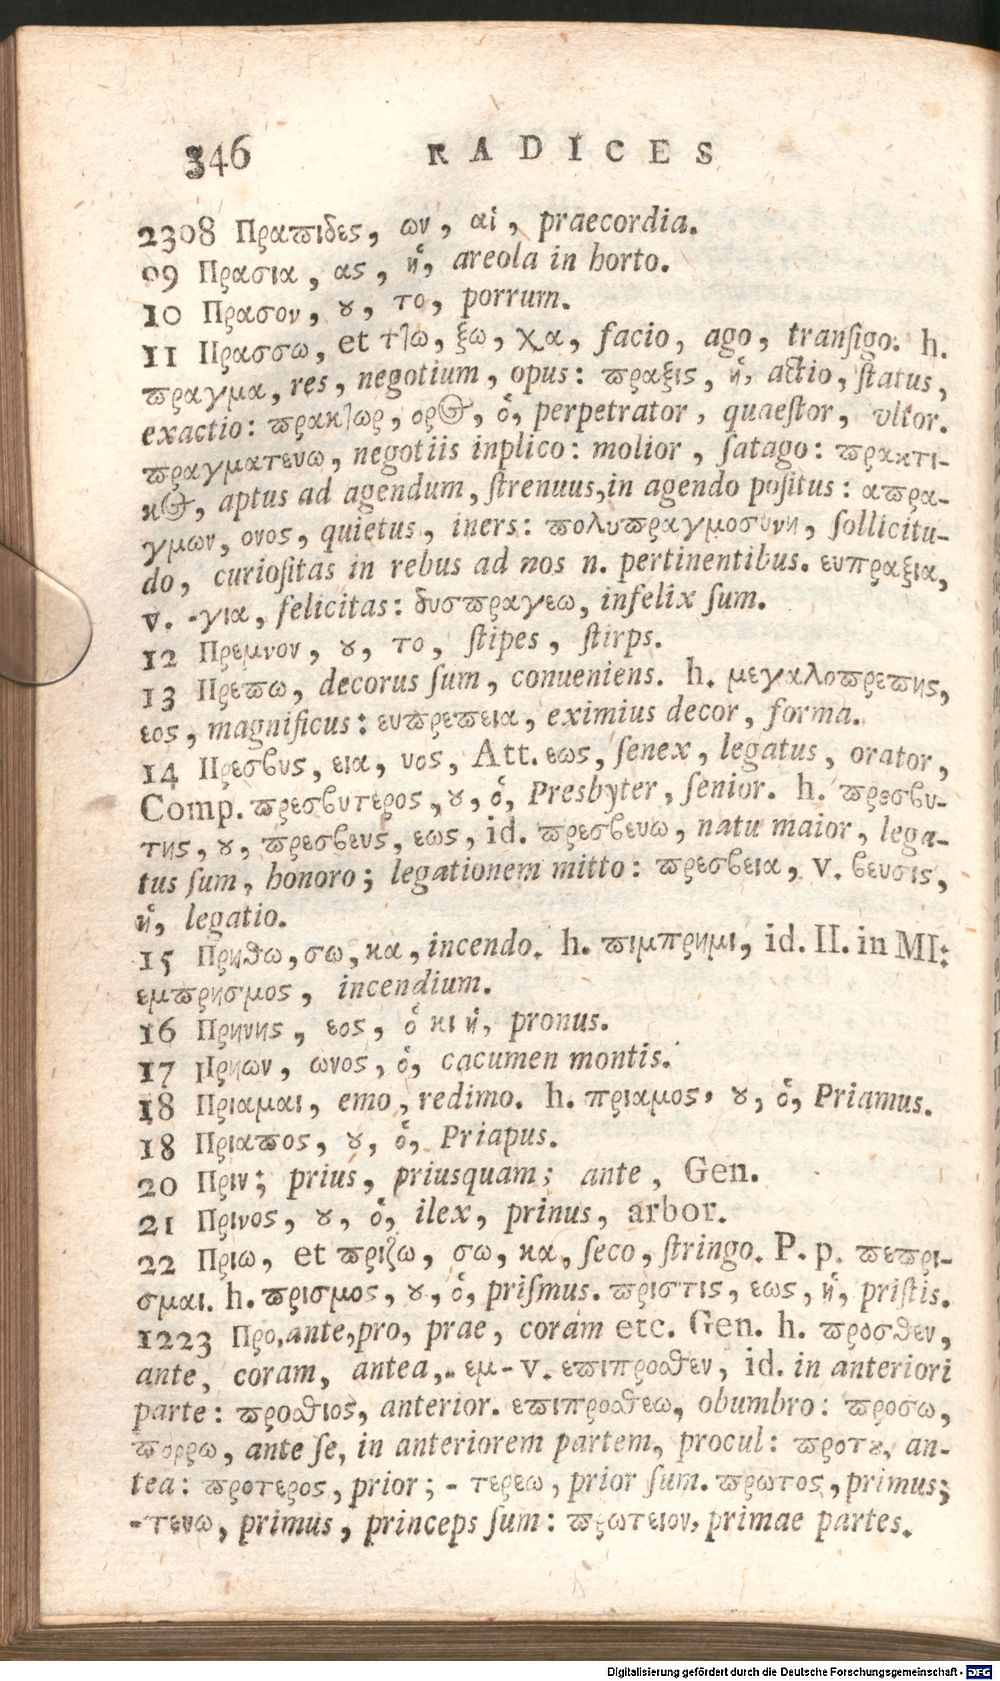 346 RADICES
2308 Πραϖιδες, ων, αἱ, praecordia.
09 Πρασια, ας, ἡ, areola in horto.
10 Πρασον, ȣ, το, porrum.
11 Πρασσω, et ττω, ξω, χα, facio, ago, tranſigo. h.
ϖραγμα, res, negotium, opus: ϖραξις, ἡ, actio, ſtatus,
exactio: ϖρακτωρ, ορος, ὁ, perpetrator, quaeſtor, vltor.
ϖραγματευω, negotiis inplico: molior, ſatago: ϖρακτι-
κος, aptus ad agendum, ſtrenuus, in agendo poſitus: αϖρα-
γμων, ονος, quietus, iners: ϖολυϖραγμοσυνη, ſollicitu-
do, curioſitas in rebus ad nos n. pertinentibus. ευπραξια,
v. -για, felicitas: δυσϖραγεω, infelix ſum.
12 Πρεμνον, ȣ, το, ſtipes, ſtirps.
13 Πρεϖω, decorus ſum, conueniens. h. μεγαλοϖρεϖης,
εος, magnificus: ευϖρεϖεια, eximius decor, forma.
14 Πρεσϐυς, εια, υος, Att. εως, ſenex, legatus, orator,
Comp. ϖρεσϐυτερος, ȣ, ὁ, Presbyter, ſenior. h. ϖρεσϐυ-
της, ȣ, ϖρεσϐευς, εως, id. ϖρεσϐευω, natu maior, lega-
tus ſum, honoro; legationem mitto: ϖρεσϐεια, v. ϐευσις,
ἡ, legatio.
15 Πρηθω, σω, κα, incendo. h. ϖιμπρημι, id. II. in MI:
εμϖρησμος, incendium.
16 Πρηνης, εος, ὁ κι ἡ, pronus.
17 Πρηων, ωνος, ὁ, cacumen montis.
18 Πριαμαι, emo, redimo. h. πριαμος, ȣ, ὁ, Priamus.
18 Πριαϖος, ȣ, ὁ, Priapus.
20 Πριν; prius, priusquam; ante, Gen.
21 Πρινος, ȣ, ὁ, ilex, prinus, arbor.
22 Πριω, et ϖριζω, σω, κα, ſeco, ſtringo. P. p. ϖεϖρι-
σμαι. h. ϖρισμος, ȣ, ὁ, priſmus. ϖριστις, εως, ἡ, priſtis.
1223 Προ, ante, pro, prae, coram etc. Gen. h. ϖροσθεν,
ante, coram, antea, εμ- v. επιπροσθεν, id. in anteriori
parte: ϖροσθιος, anterior. επιπροσθεω, obumbro: ϖροσω,
ϖορρω, ante ſe, in anteriorem partem, procul: ϖροτȣ, an-
tea: ϖροτερος, prior; - τερεω, prior ſum. ϖρωτος, primus;
-τευω, primus, princeps ſum: ϖρωτειον, primae partes.
Digitalisierung gefördert durch die Deutsche Forschungsgemeinschaft - DFG